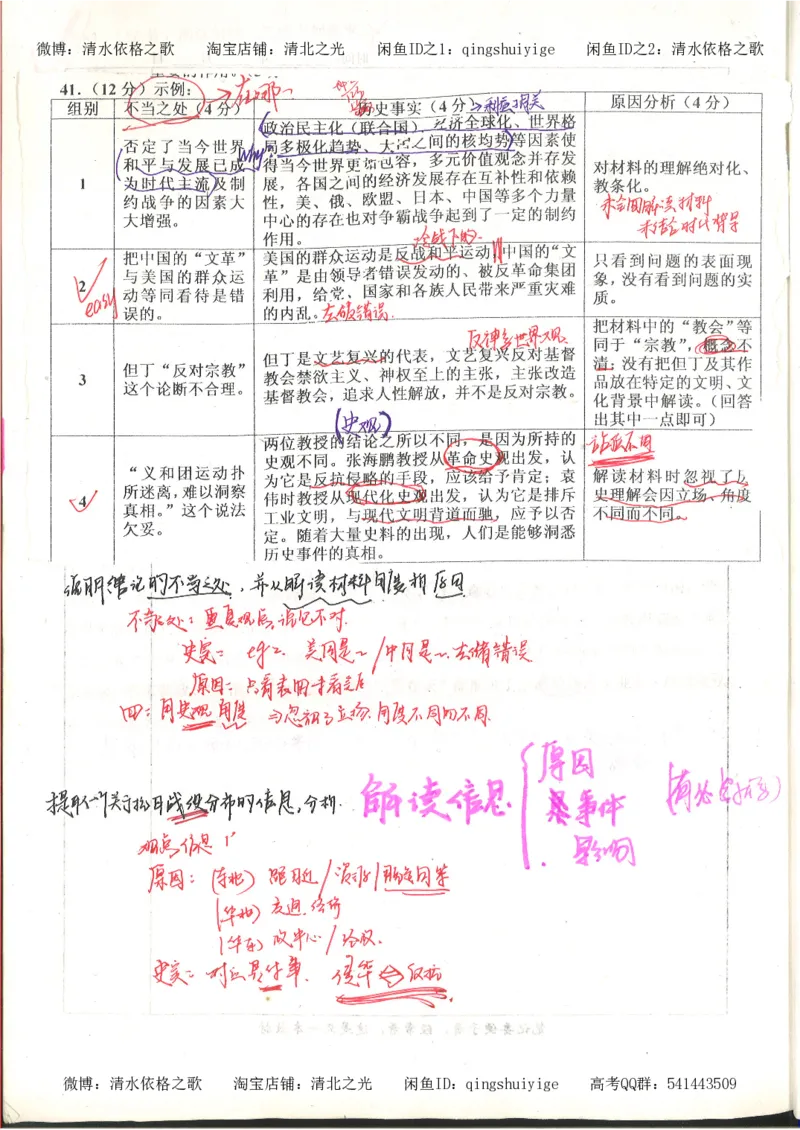 微博：清水依格之歌 淘宝店铺：清北之光 闲鱼ID之1：qingshuiyige 闲鱼ID之2：清水依格之歌
41.（12分）示例：
组别 不当之处（4分） 历史事实（4分） 原因分析（4分）
1
否定了当今世界
和平与发展已成
为时代主流及制
约战争的因素大
大增强。
why
政治民主化（联合国）、经济全球化、世界格
局多极化趋势、大国之间的核均势等因素使
得当今世界更加包容，多元价值观念并存发
展，各国之间的经济发展存在互补性和依赖
性，美、俄、欧盟、日本、中国等多个力量
中心的存在也对争霸战争起到了一定的制约
作用。
对材料的理解绝对化、
教条化。
未全面解读材料
未结合时代背景
2
easy
把中国的“文革”
与美国的群众运
动等同看待是错
误的。
冷战下的
美国的群众运动是反战和平运动，中国的“文
革”是由领导者错误发动的、被反革命集团
利用，给党、国家和各族人民带来严重灾难
的内乱。左倾错误.
只看到问题的表面现
象，没有看到问题的实
质。
3
但丁“反对宗教”
这个论断不合理。
反神学世界观
但丁是文艺复兴的代表，文艺复兴反对基督
教会禁欲主义、神权至上的主张，主张改造
基督教会，追求人性解放，并不是反对宗教。
(史观)
把材料中的“教会”等
同于“宗教”，概念不
清；没有把但丁及其作
品放在特定的文明、文
化背景中解读。（回答
出其中一点即可）
4
“义和团运动扑
所迷离，难以洞察
真相。”这个说法
欠妥。
两位教授的结论之所以不同，是因为所持的
史观不同。张海鹏教授从革命史观出发，认
为它是反抗侵略的手段，应该给予肯定；袁
伟时教授从现代化史观出发，认为它是排斥
工业文明，与现代文明背道而驰，应予以否
定。随着大量史料的出现，人们是能够洞悉
历史事件的真相。
站位不同
解读材料时忽视了历
史理解会因立场、角度
不同而不同。
指明结论的不当之处，并从解读材料角度析原因
不当之处：
史实： eg 2. 美国是~/中国是~.左倾错误
原因：只看表面未看实质
四：用史观角度 ⇒忽视了立场.角度不同的不同.
提取一个关于抗日战役分布的信息，分析.
解读信息
原因
事件
影响
观点信息 1'
原因：(东北) 距日近/资源/
(华北)
(华东) 政中心/
史实：对应具体事. 侵华⇔反抗
微博：清水依格之歌 淘宝店铺：清北之光 闲鱼ID：qingshuiyige 高考QQ群：541443509